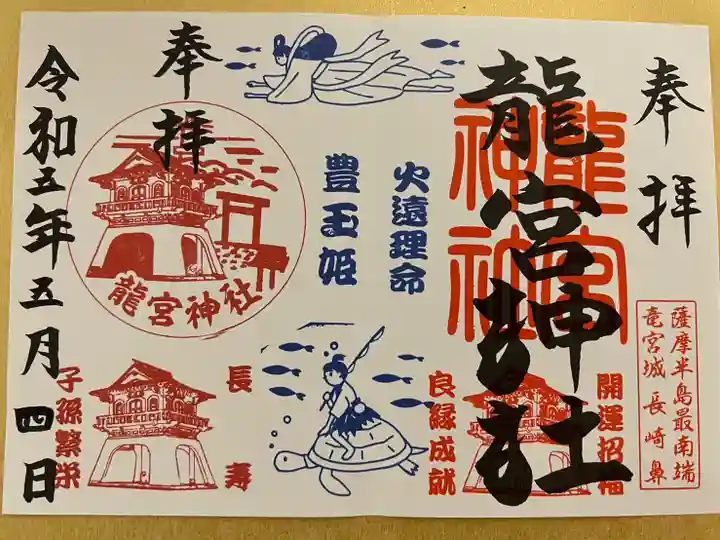 奉拝
龍宮神社
龍宮
神社
薩摩半島最南端
竜宮城 長崎鼻
開運招福
良縁成就
火遠理命
豊玉姫
奉拝
龍宮神社
長寿
子孫繁栄
令和五年五月四日